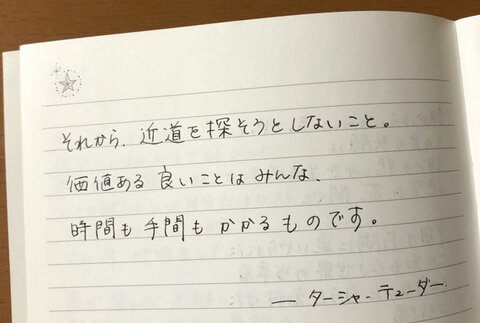 それから、近道を探そうとしないこと。
価値ある良いことはみんな、
時間も手間もかかるものです。
— ターシャ・テューダー